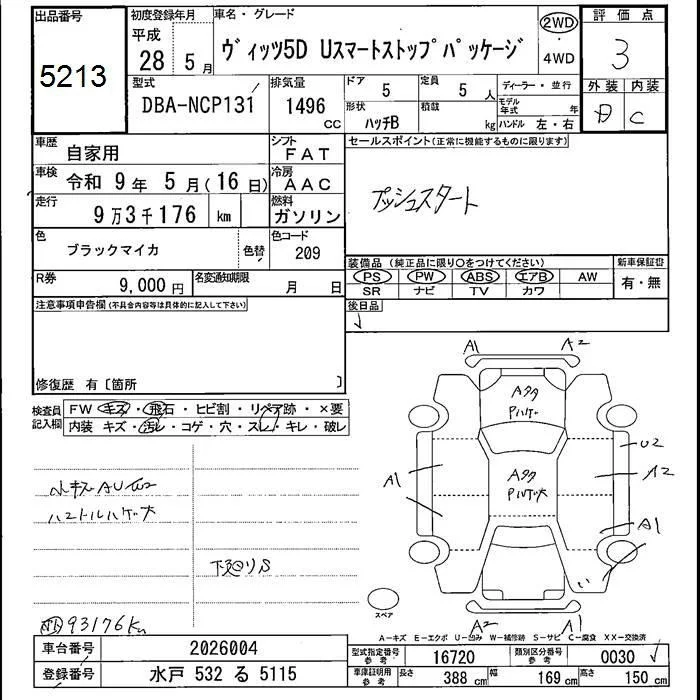 出品番号
5213
初度登録年月
平成
28 5月
車名・グレード
ヴィッツ5D Uスマートストップパッケージ
2WD
4WD
評価点
3
外装 内装
C
型式
DBA-NCP131
排気量
1496
CC
ドア
5
定員
5 人
形状
ハッチB
積載
kg
ディーラー・並行
モデル年式 年
ハンドル 左・右
車歴
自家用
シフト
FAT
車検
令和 9年 5月(16日)
冷房
AAC
走行
9万3千176 km
燃料
ガソリン
色
ブラックマイカ
色替
色コード
209
R券
9,000 円
名変通知期限
月 日
セールスポイント(正常に機能するものに限ります)
プッシュスタート
装備品(純正品に限り○をつけてください)
PS PW ABS エアB AW
SR ナビ TV カワ
新車保証書
有・無
後日品
注意事項申告欄(不具合内容等は具体的に記入して下さい)
修復歴 有〔箇所 〕
検査員記入欄
FW キズ・飛石・ヒビ割・リペア跡・×要
内装 キズ・汚レ・コゲ・穴・スレ・キレ・破レ
ハンドルハゲ大
下廻りS
93176Km
A1
A2
Aタタ
Pハゲ
U2
A1
A2
Aタタ
Pハゲ大
A1
A2
A1
スペア
A-キズ E-エクボ U-凹み W-補修跡 S-サビ C-腐食 XX-交換済
車台番号
2026004
登録番号
水戸 532 る 5115
型式指定番号
参考
16720
類別区分番号
参考
0030
車庫証明用
参考
長さ
388 cm
幅
169 cm
高さ
150 cm